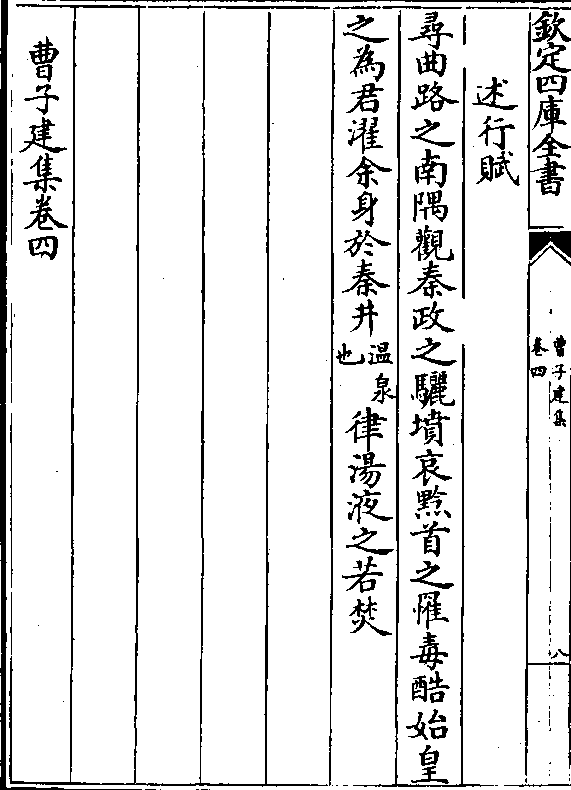 欽定四庫全書
曹子建集
卷四
八
述行賦
尋曲路之南隅觀秦政之驪墳哀黔首之罹毒酷始皇
之為君濯余身於秦井溫泉也律湯液之若焚
曹子建集卷四